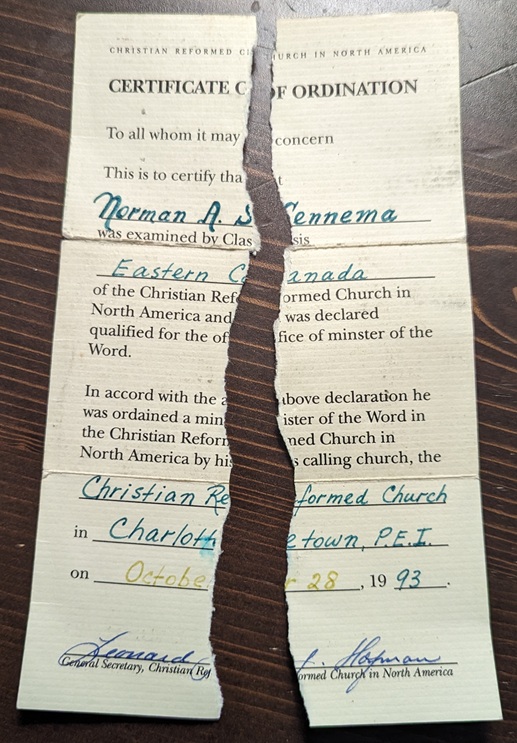 CHRISTIAN REFORMED CHURCH IN NORTH AMERICA
CERTIFICATE OF ORDINATION
To all whom it may concern
This is to certify that
Norman A. Sennema
was examined by Classis
Eastern Canada
of the Christian Reformed Church in
North America and was declared
qualified for the office of minster of the
Word.
In accord with the above declaration he
was ordained a minister of the Word in
the Christian Reformed Church in
North America by his calling church, the
Christian Reformed Church
in Charlottetown, P.E.I.
on October 28, 1993.
Leonard J. Hofman
General Secretary, Christian Reformed Church in North America